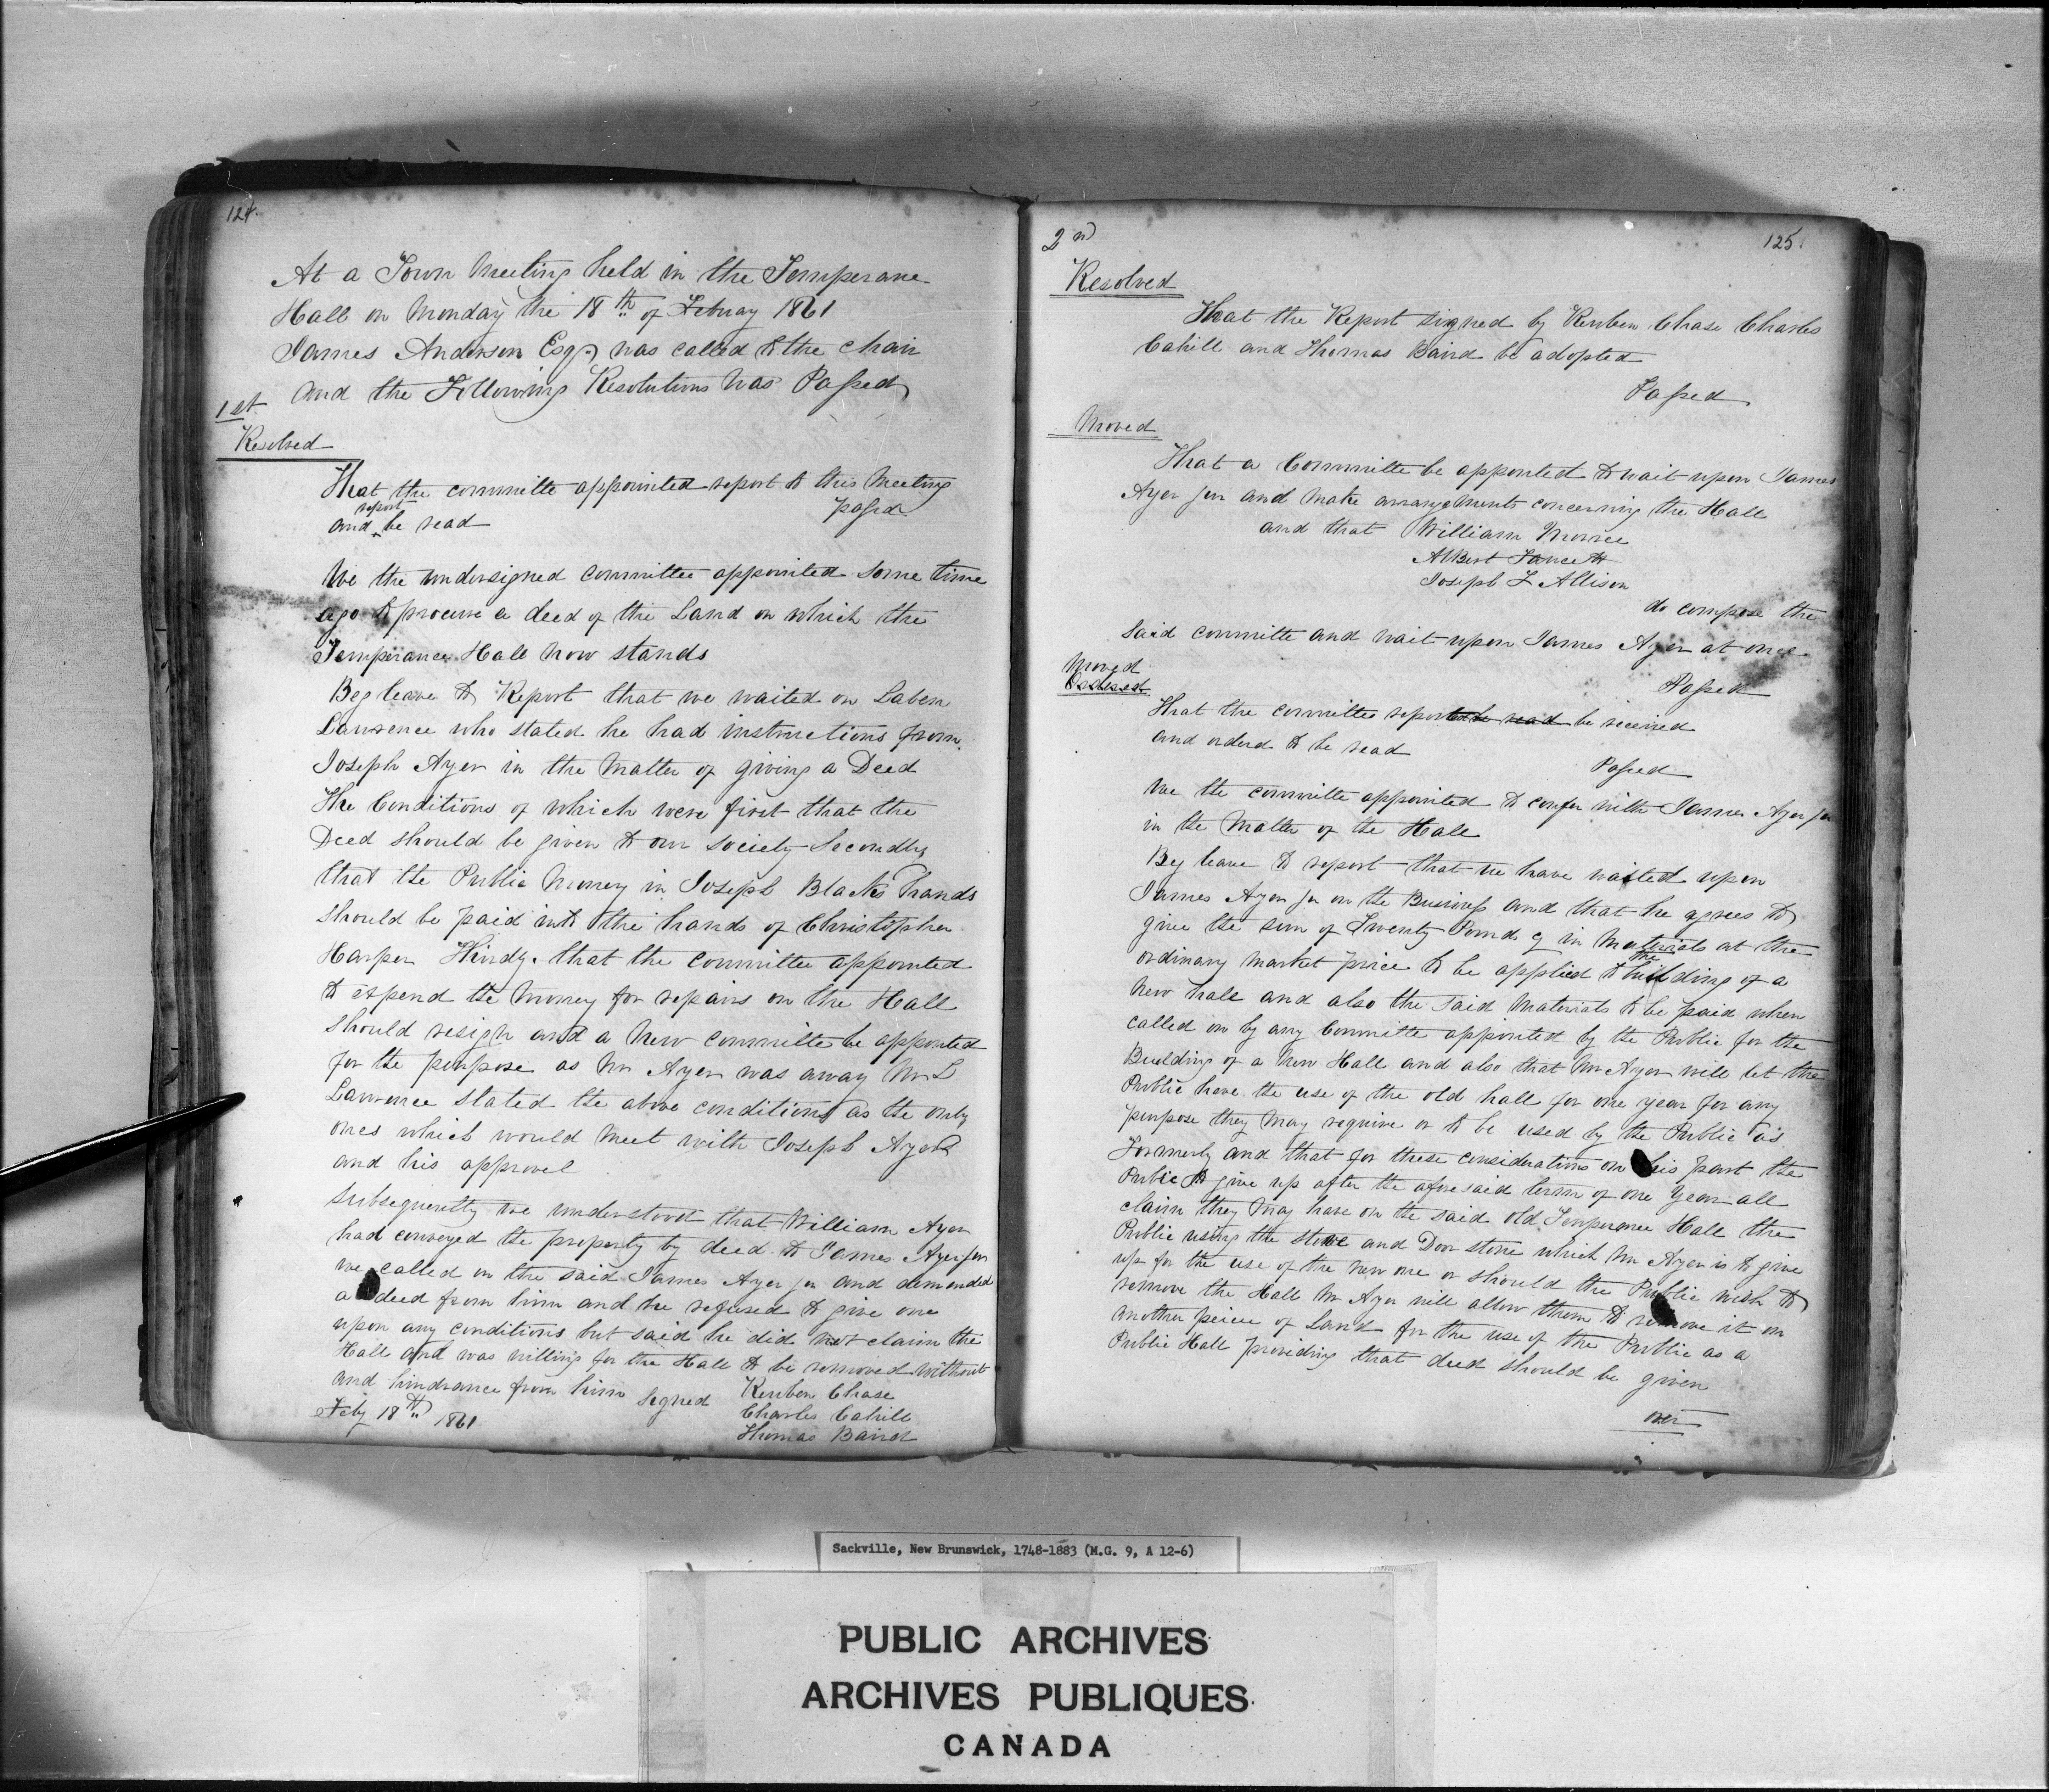 124.
At a Town Meeting held in the Temperane
Hall on Monday the 18th of Febuay 1861
James Anderson Esqr was called to the chair
and the Following Resolutions was Passed
1st
Resolved
That the committe appointed report to this Meeting
and report be read passed
We the undersigned committee appointed some time
ago to procure a deed of the Land on which the
Temperance Hall now stands
Beg leave to Report that we waited on Laben
Lawrence who stated he had instructions from
Joseph Ayer in the Matter of giving a Deed
The Conditions of which were first that the
Deed should be given to our society Secondly
that the Public Money in Joseph Blacks hands
should be paid into the hands of Christopher
Harper Thirdly that the committee appointed
to expend the Money for repairs on the Hall
should resign and a New committe be appointed
for the purpose as Mr Ayer was away Mr L
Lawrence stated the above conditions as the only
ones which would meet with Joseph Ayer
and his approvel
Subsequently we understood that William Ayer
had conveyed the property by deed to James Ayer Jur
we called on the said James Ayer jur and demanded
a deed from him and he refused to give one
upon any conditions but said he did not claim the
Hall and was willing for the Hall to be removed without
and hindrance from him Signed Reuben Chase
Feby 18th 1861 Charles Cahill
Thomas Baird
2nd 125.
Resolved
That the Report signed by Reuben Chase Charles
Cahill and Thomas Baird be adopted
Passed
Moved
That a Committe be appointed to wait upon James
Ayer jur and make arrangements concerning the Hall
and that William Morice
Albert Fawcett
Joseph F Allison
do compose the
said committe and wait upon James Ayer at once
Passed
Moved
That the committee report to be read be received
and orderd to be read
Passed
We the committe appointed to confer with James Ayer jur
in the Matter of the Hall
Beg leave to report that we have waited upon
James Ayer jur on the Business and that he agrees to
give the sum of Twenty Pounds in Materials at the
ordinary market price to be applied to the building of a
New hall and also the said Materials to be paid when
called on by any Committe appointed by the Public for the
Building of a New Hall and also that Mr Ayer will let the
Public have the use of the old hall for one year for any
purpose they May require or to be used by the Public as
Formerly and that for these considerations on his part the
Public to give up after the afore said term of one Year all
claim they May have on the said old Temperance Hall the
Public using the stove and Door stone which Mr Ayer is to give
up for the use of the new one or should the Public wish to
remove the Hall Mr Ayer will allow them to remove it on
another peice of Land for the use of the Public as a
Public Hall providing that deed should be given
over
Sackville, New Brunswick, 1748-1883 (M.G. 9, A 12-6)
PUBLIC ARCHIVES
ARCHIVES PUBLIQUES
CANADA